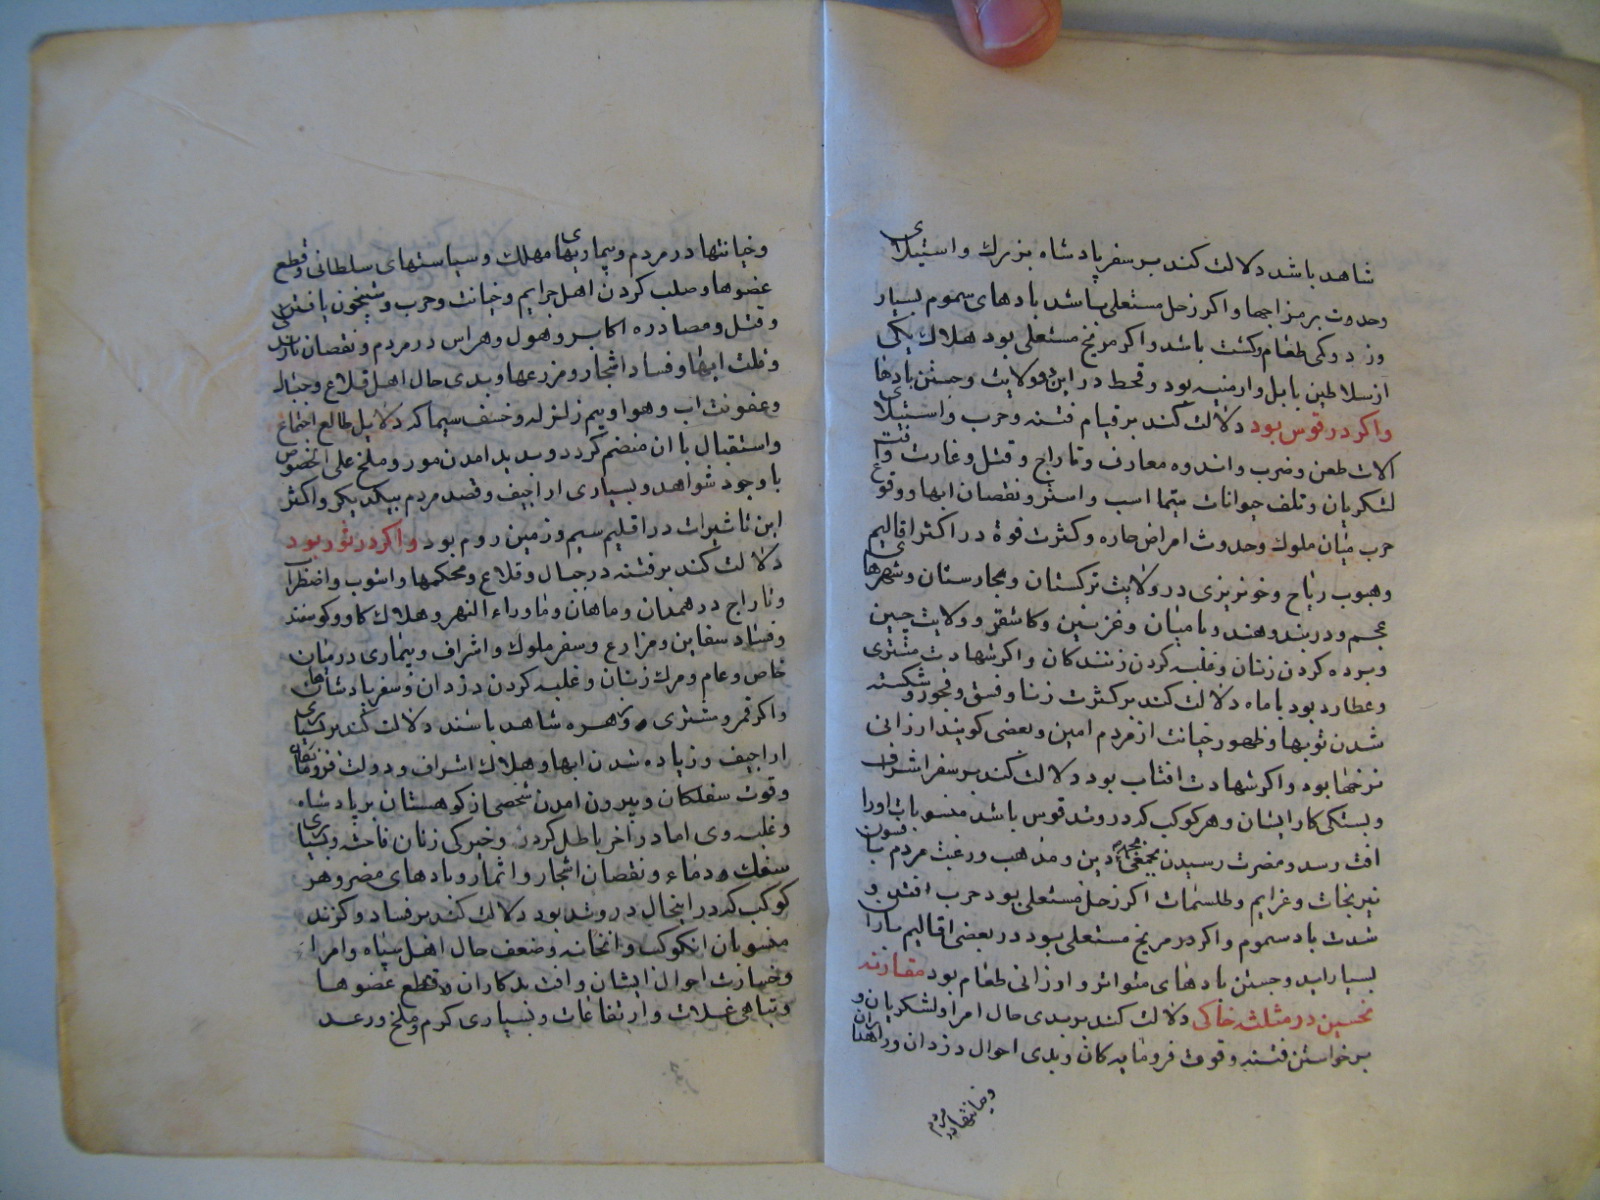 شاهد باشد دلالت کند بر سفر پادشاه بزرك و استیلای
وحدوث بر مزاجها واکر زحل مستعلی باشد بادهای سموم بسیار
وزد وکمی طعام وکشت باشد واکر مریخ مستعلی بود هلاك یکی
از سلاطین بابل وارمنیه بود وقحط در این دو ولایت وجستن بادهای
واکر در قوس بود دلالت کند بر قیام فتنه وحرب واستیلا
الات طعن وضرب واندوه معارف وتاراج وقتل وغارت وافت
لشکریان وتلف حیوانات سیما اسب واستر ونقصان ابها ووقوع
حرب میان ملوك وحدوث امراض حاره وکثرت قوة در اکثر اقالیم
وهبوب ریاح وخونریزی در ولایت ترکستان و شهرهای
عجم ودربند وهند وبامیان وغزنین وکاشغر وولایت چین
وبرده کردن زنان وغلبه کردن زنندکان واکر شهادت مشتری
وعطارد بود با ماه دلالت کند بر کثرت زنا وفسق وفجور وشکسته
شدن توبها وظهور خیانت از مردم امین وبعضی کویند ارزانی
نرخها بود واکر شهادت افتاب بود دلالت کند بر سفر اشراف
وبستکی کار ایشان وهر کوکب که در وتد قوس باشد منسوبات اورا
افت رسد ومضرت رسیدن دین ومذهب ورغبت مردم بافسون
نیرنجات وعزایم وطلسمات اکر زحل مستعلی بود حرب افتد و
شدت باد سموم واکر در مریخ مستعلی بود در بعضی اقالیم باران
بسیار اید وجستن بادهای متواتر وارزانی طعام بود مقارنه
نحسین در مثلثه خاکی دلالت کند بر بدی حال امرا ولشکریان و
برخواستن فتنه وقوت فرومایه کان وبدی احوال دزدان وراهداران
وخیانتها در مردم
وخیانتها در مردم وبیماریهای مهلك وسیاستهای سلطانی وقطع
عضوها وصلب کردن اهل جرایم وخیانت وحرب وشبخون یافتن
وقتل ومصادره اکابر وهول وهراس در مردم ونقصان
وقلت ابها وفساد اشجار ومزرعها وبدی حال اهل قلاع وجبال
وعفونت اب وهوا وبیم زلزله وخسف سیما که دلایل طالع اجتماع
واستقبال با ان منضم کردد وبدید امدن مور وملخ علی الخصوص
با وجود شواهد وبسیاری اراجیف وقصد مردم بیکدیکر واکثر
این تاثیرات در اقلیم سیم وزمین روم بود واکر در ثور بود
دلالت کند بر فتنه در جبال وقلاع ومحکمها واشوب واضطراب
وتاراج در همدان وماهان وماوراء النهر وهلاك کاو وکوسفند
وفساد سفاین ومزارع وسفر ملوك واشراف وبیماری در میان
خاص وعام ومرك زنان وغلبه کردن دزدان وسفر پادشاهان
واکر قمر ومشتری وزهره شاهد باشند دلالت کند بر بسیاری
اراجیف وزیاده شدن ابها وهلاك اشراف ودولت فرومایکان
وقوت سفلکان وبیرون امدن شخصی از کوهستان بر پادشاه
وغلبه وی اما در اخر باطل کردد وخیرکی زنان فاحشه وبسیاری
سفك ودماء ونقصان اشجار واثمار وبادهای مضر وهر
کوکب که در اینحال در وتد بود دلالت کند بر فساد وکزند
منسوبان انکوکب وانخانه وضعف حال اهل سپاه وامرا
وخسارت احوال ایشان وافت بدکاران وقطع عضوها
وتباهی غلات وارتفاعات وبسیاری کرم وملخ ورعد